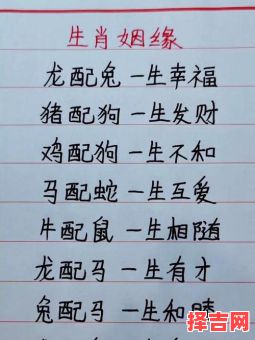 生肖姻缘
龙配兔 一生幸福
猪配狗 一生发财
鸡配狗 一生不和
马配蛇 一生互爱
牛配鼠 一生相随
龙配马 一生有才
兔配马 一生和睦
择吉网